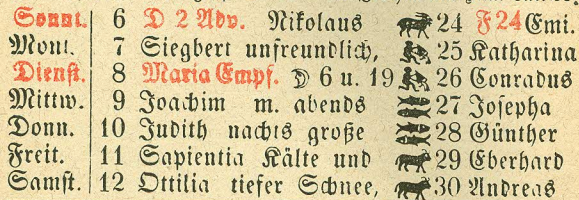 Sonnt. 6 D 2 Adv. Nikolaus 24 F 24 Emi.
Mont. 7 Siegbert unfreundlich, 25 Katharina
Dienst. 8 Maria Empf. 6 u. 19 26 Conradus
Mittw. 9 Joachim m. abends 27 Josepha
Donn. 10 Judith nachts große 28 Günther
Freit. 11 Sapientia Kälte und 29 Eberhard
Samst. 12 Ottilia tiefer Schnee, 30 Andreas